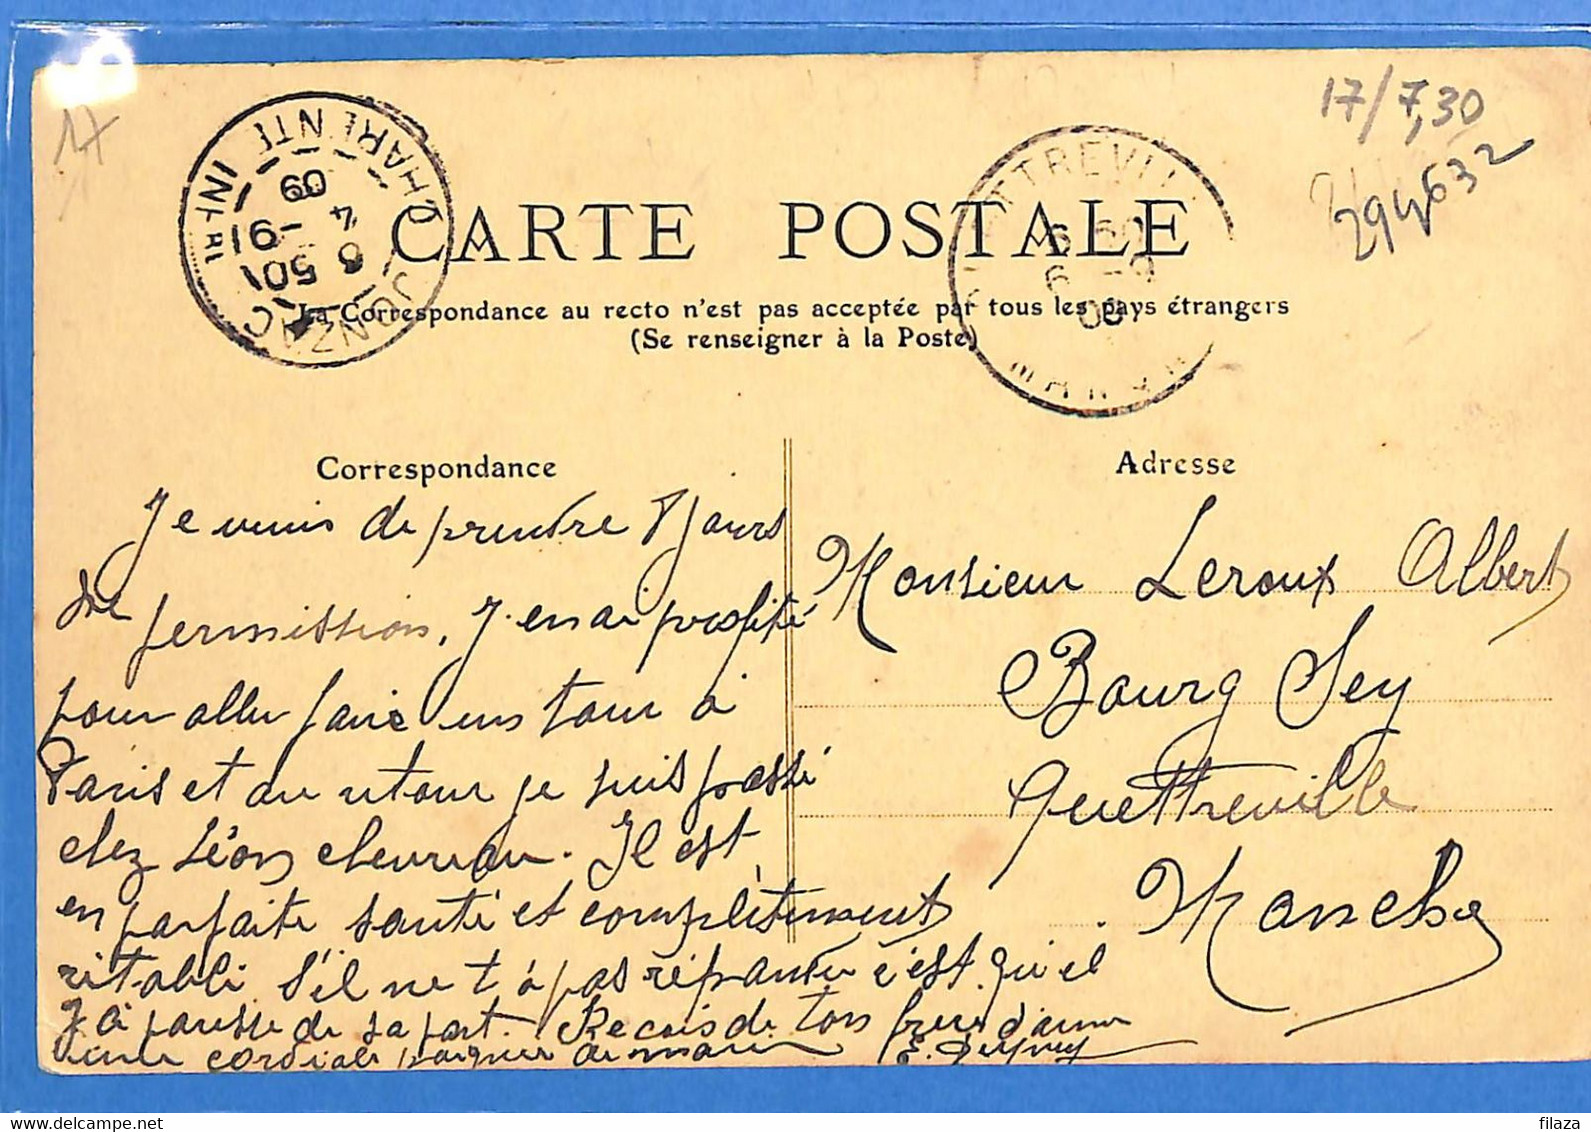 17
17/7,30
294632
CHARENTE INFRE
JONZAC
6 50
4 -9
09
QUETTREVILLE
MANCHE
6 -9
09
CARTE POSTALE
La Correspondance au recto n'est pas acceptée par tous les pays étrangers
(Se renseigner à la Poste)
Correspondance
Je viens de prendre 8 jours
de permission, J'en ai profité
pour aller faire un tour à
Paris et au retour je suis passé
chez Léon chevreau. Il est
en parfaite santé et complètement
rétabli s'il ne t'à pas répondu c'est qu'il
y a paresse de sa part. Recois de ton frere d'arme
une cordiale poignée de main
Adresse
Monsieur Leroux Albert
Bourg Sey
Quettreville
Manche
filaza
www.delcampe.net